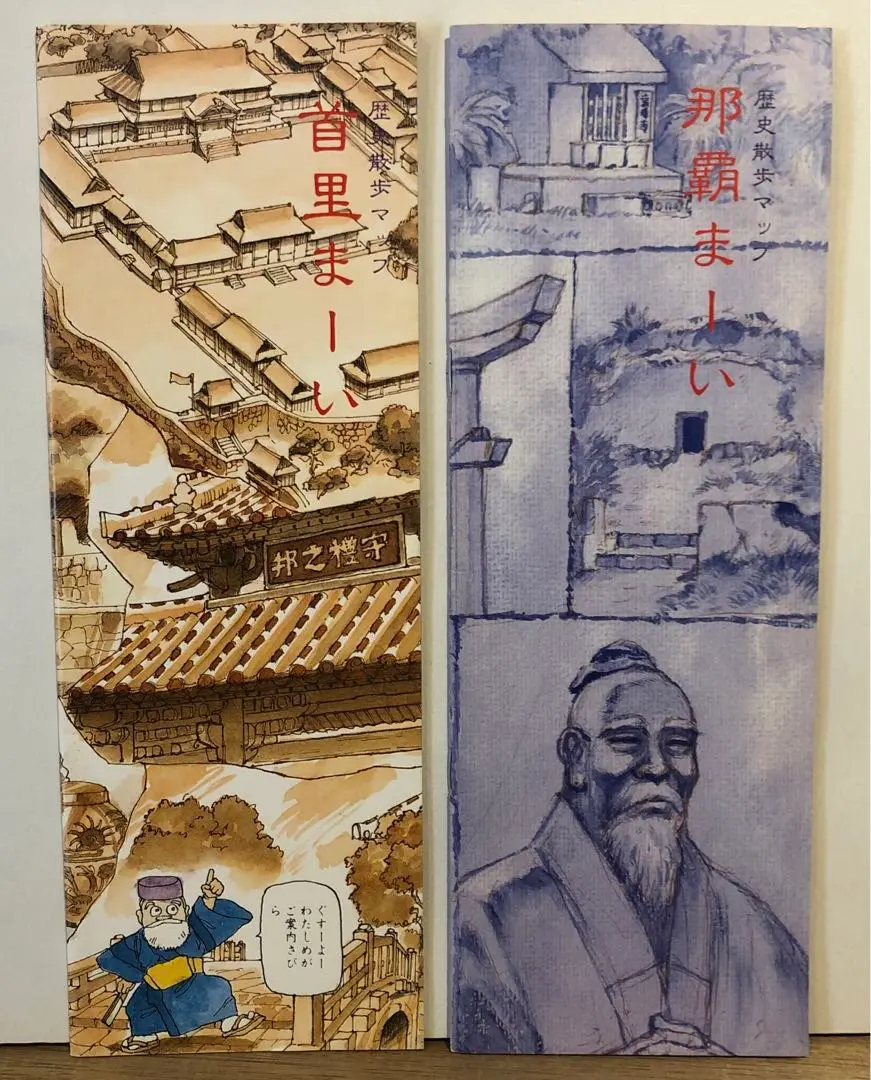 歴史散歩マップ
首里まーい
守禮之邦
ぐすーよー
わたしめが
ご案内さび
ら
歴史散歩マップ
那覇まーい